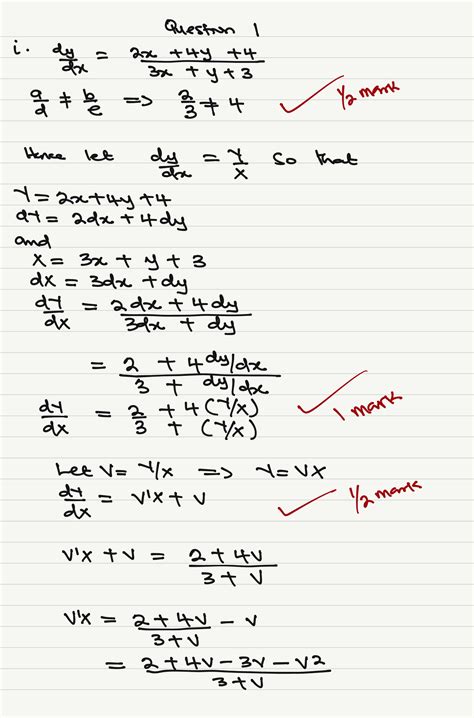 Question 1
i. dy/dx = (2x + 4y + 4)/(3x + y + 3)
a/d ≠ b/e => 2/3 ≠ 4 ✓ 1/2 mark
Hence let dy/dx = Y/X so that
Y = 2x + 4y + 4
dY = 2dx + 4dy
and
X = 3x + y + 3
dX = 3dx + dy
dY/dX = (2dx + 4dy)/(3dx + dy)
= (2 + 4 dy/dx)/(3 + dy/dx)
dY/dX = (2 + 4(Y/X))/(3 + (Y/X)) ✓ 1 mark
Let V = Y/X => Y = VX
dY/dX = V'X + V ✓ 1/2 mark
V'X + V = (2 + 4V)/(3 + V)
V'X = (2 + 4V)/(3 + V) - V
= (2 + 4V - 3V - V²)/(3 + V)